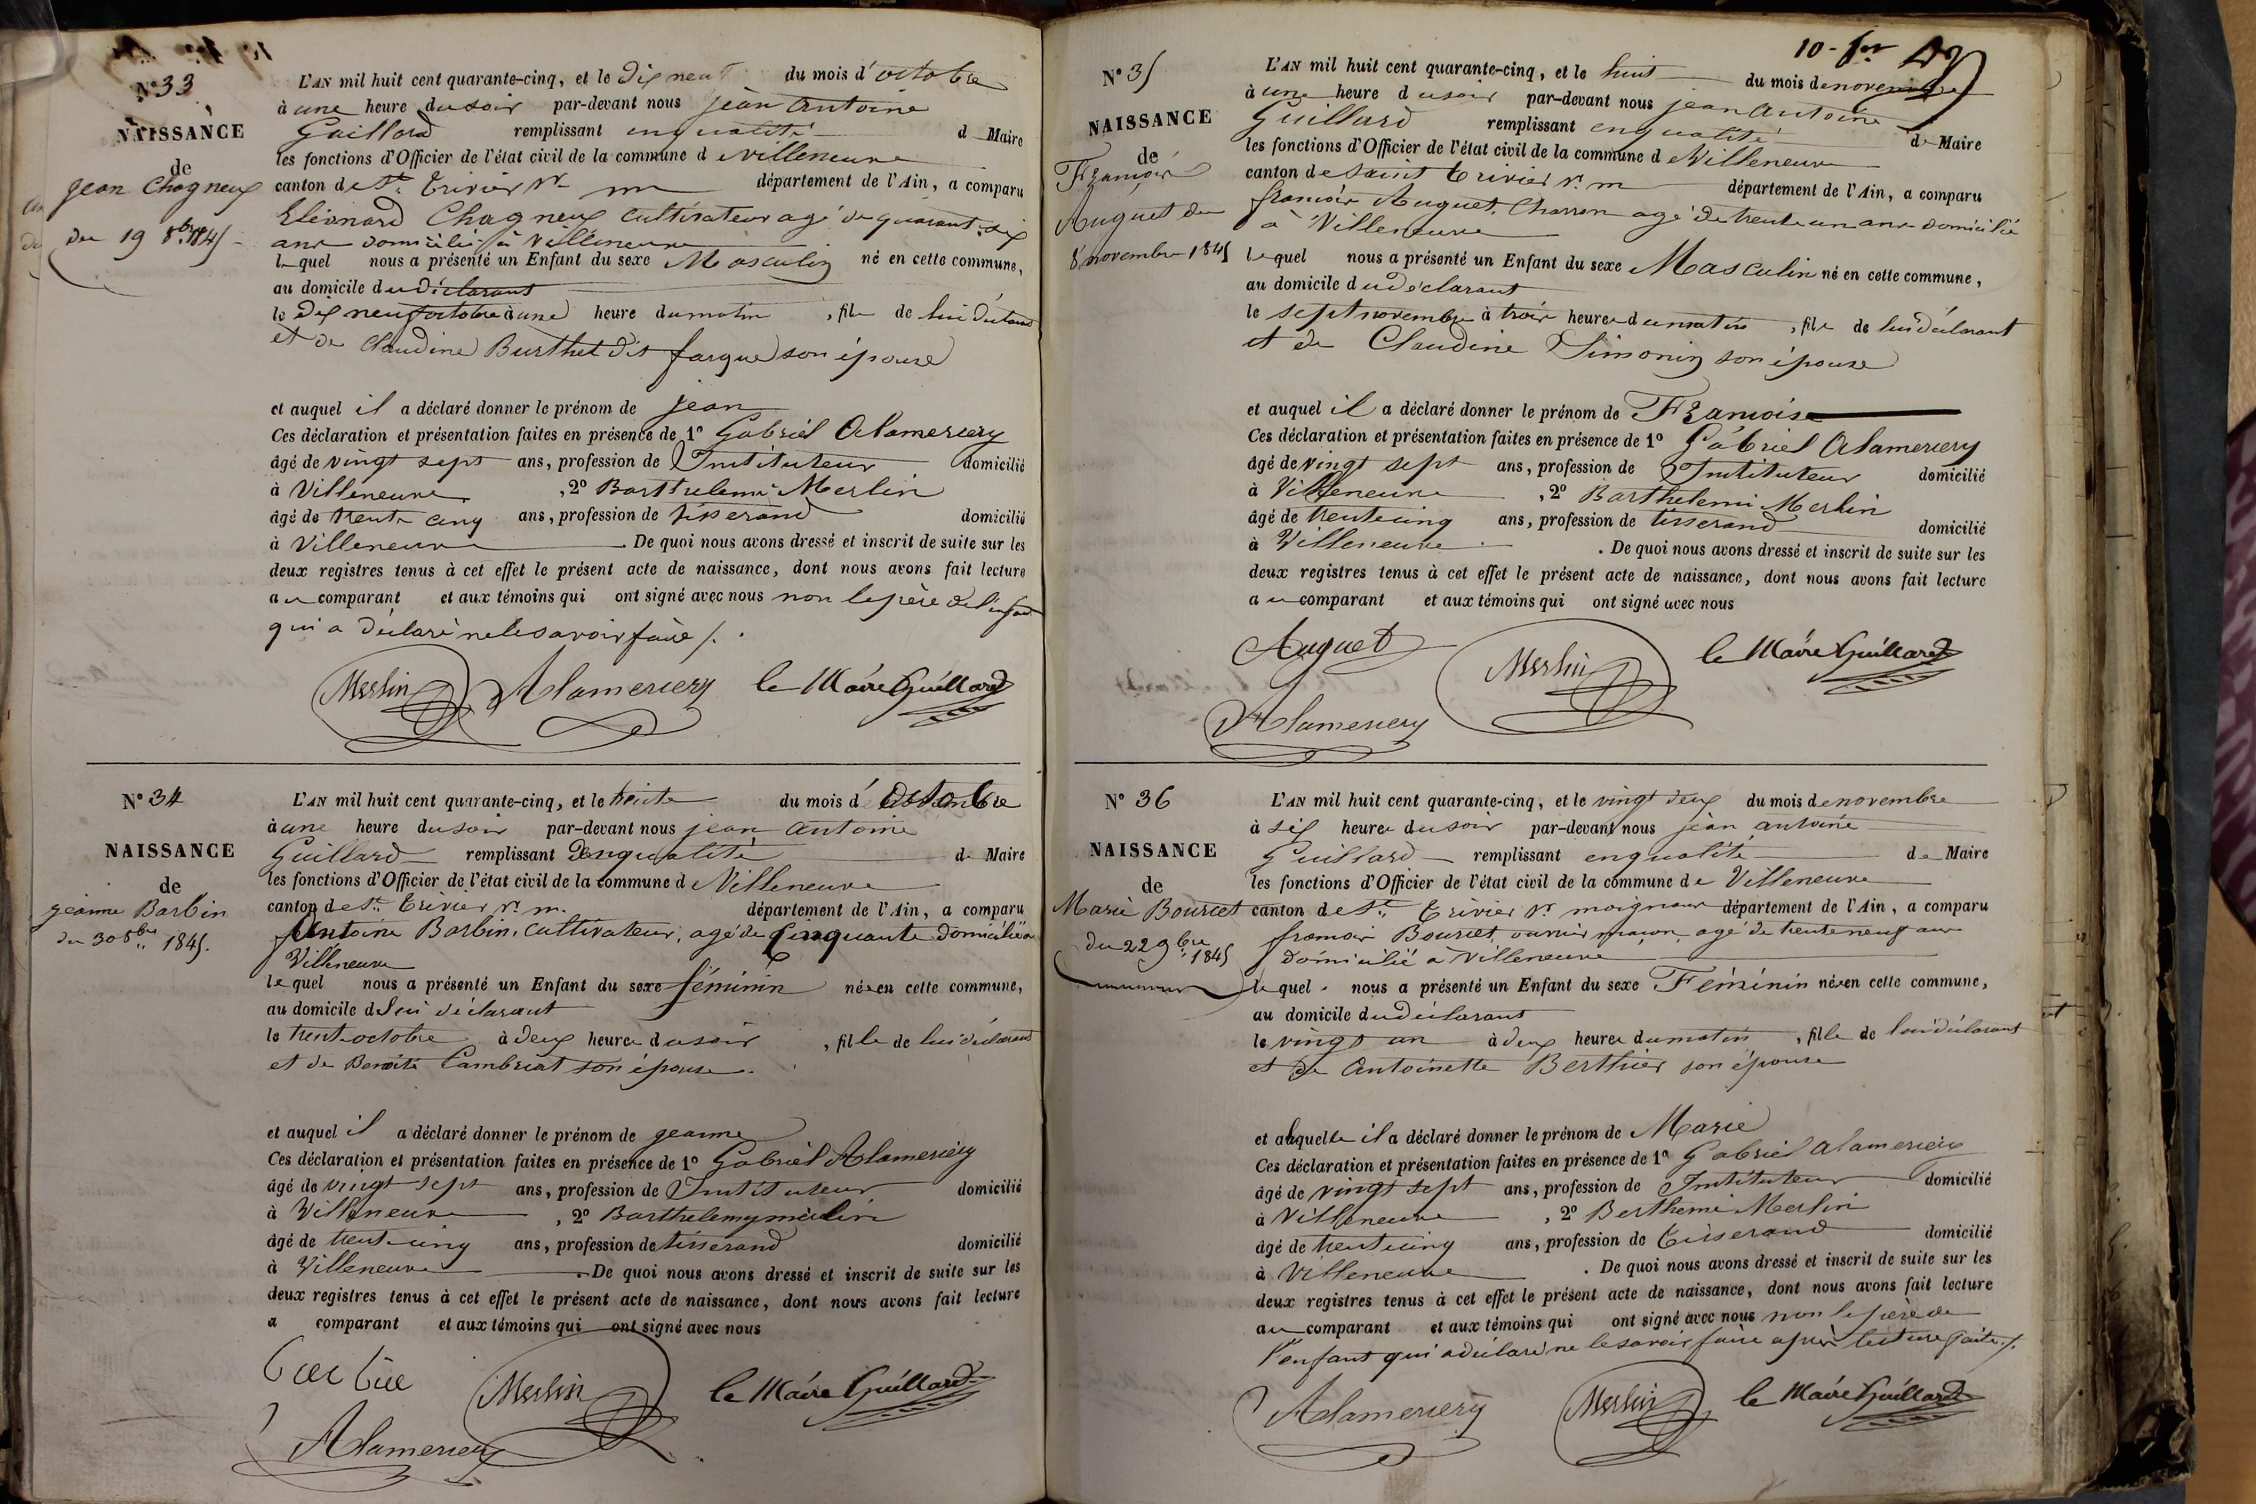 N° 33
NAISSANCE
de
jean Chagneux
du 19 8bre 1845
L'AN mil huit cent quarante-cinq, et le dix neuf du mois d'octobre
à une heure du soir par-devant nous jean antoine
Guillard remplissant en qualité de Maire
les fonctions d'Officier de l'état civil de la commune de villeneuve
canton de St. Trivier Sr m département de l'Ain, a comparu
Eléonard Chagneux cultivateur agé de quarant-six
ans domicilié à Villeneuve
lequel nous a présenté un Enfant du sexe Masculin né en cette commune,
au domicile du déclarant
le dix neuf octobre à une heure du matin, fils de lui déclarant
et de Claudine Burthet dit fargue son épouse
et auquel il a déclaré donner le prénom de jean
Ces déclaration et présentation faites en présence de 1° Gabriel Alamerciery
âgé de vingt sept ans, profession de Instituteur domicilié
à Villeneuve, 2° Barthelemi Merlin
âgé de trente cinq ans, profession de tisserand domicilié
à Villeneuve. De quoi nous avons dressé et inscrit de suite sur les
deux registres tenus à cet effet le présent acte de naissance, dont nous avons fait lecture
au comparant et aux témoins qui ont signé avec nous non le père de l'enfant
qui a déclaré ne le savoir faire /.
Merlin Alamerciery le Maire Guillard
N° 34
NAISSANCE
de
jeanne Barbin
du 30 8bre 1845.
L'AN mil huit cent quarante-cinq, et le trente du mois d'octobre
à une heure du soir par-devant nous jean antoine
Guillard remplissant en qualité de Maire
les fonctions d'Officier de l'état civil de la commune de Villeneuve
canton de St. Trivier Sr. m. département de l'Ain, a comparu
Antoine Barbin, cultivateur, agé de Cinquante domicilié à
Villeneuve
lequel nous a présenté un Enfant du sexe féminin née en cette commune,
au domicile de lui déclarant
le trent octobre à deux heures du soir, fille de lui déclarant
et de Benoite Cambriat son épouse.
et auquel il a déclaré donner le prénom de jeanne
Ces déclaration et présentation faites en présence de 1° Gabriel Alamerciery
âgé de vingt sept ans, profession de Instituteur domicilié
à Villeneuve, 2° Barthelemy merlin
âgé de trent-cinq ans, profession de tisserand domicilié
à Villeneuve. De quoi nous avons dressé et inscrit de suite sur les
deux registres tenus à cet effet le présent acte de naissance, dont nous avons fait lecture
a comparant et aux témoins qui ont signé avec nous
Merlin le Maire Guillard
Alamerciery
N° 35
NAISSANCE
de
François
Auguet du
8 novembre 1845
L'AN mil huit cent quarante-cinq, et le huit du mois de novembre
à une heure du soir par-devant nous jean antoine
Guillard remplissant en qualité de Maire
les fonctions d'Officier de l'état civil de la commune de Villeneuve
canton de saint Trivier Sr. m département de l'Ain, a comparu
françois Auguet, Charron agé de trente un ans domicilié
à Villeneuve
lequel nous a présenté un Enfant du sexe Masculin né en cette commune,
au domicile du déclarant
le sept novembre à trois heures du matin, fils de lui déclarant
et de Claudine Simonin son épouse
et auquel il a déclaré donner le prénom de François
Ces déclaration et présentation faites en présence de 1° Gabriel Alamerciery
âgé de vingt sept ans, profession de Instituteur domicilié
à Villeneuve, 2° Barthelemi Merlin
âgé de trente cinq ans, profession de tisserand domicilié
à Villeneuve. De quoi nous avons dressé et inscrit de suite sur les
deux registres tenus à cet effet le présent acte de naissance, dont nous avons fait lecture
au comparant et aux témoins qui ont signé avec nous
Auguet Merlin le Maire Guillard
Alamerciery
N° 36
NAISSANCE
de
Marie Bourcet
du 22 9bre 1845
L'AN mil huit cent quarante-cinq, et le vingt deux du mois de novembre
à six heures du soir par-devant nous jean antoine
Guillard remplissant en qualité de Maire
les fonctions d'Officier de l'état civil de la commune de Villeneuve
canton de St. Trivier Sr moignans département de l'Ain, a comparu
françois Bourcet, ouvrier maçon, agé de trente neuf ans
domicilié à Villeneuve
lequel nous a présenté un Enfant du sexe Féminin née en cette commune,
au domicile du déclarant
le vingt un à deux heures du matin, fille de lui déclarant
et de Antoinette Berthier son épouse
et a laquelle il a déclaré donner le prénom de Marie
Ces déclaration et présentation faites en présence de 1° Gabriel Alamerciery
âgé de vingt sept ans, profession de Instituteur domicilié
à Villeneuve, 2° Berthemi Merlin
âgé de trent cinq ans, profession de Tisserand domicilié
à Villeneuve. De quoi nous avons dressé et inscrit de suite sur les
deux registres tenus à cet effet le présent acte de naissance, dont nous avons fait lecture
au comparant et aux témoins qui ont signé avec nous non le père de
l'enfant qui a déclaré ne le savoir faire après lecture faite /.
Alamerciery Merlin le Maire Guillard